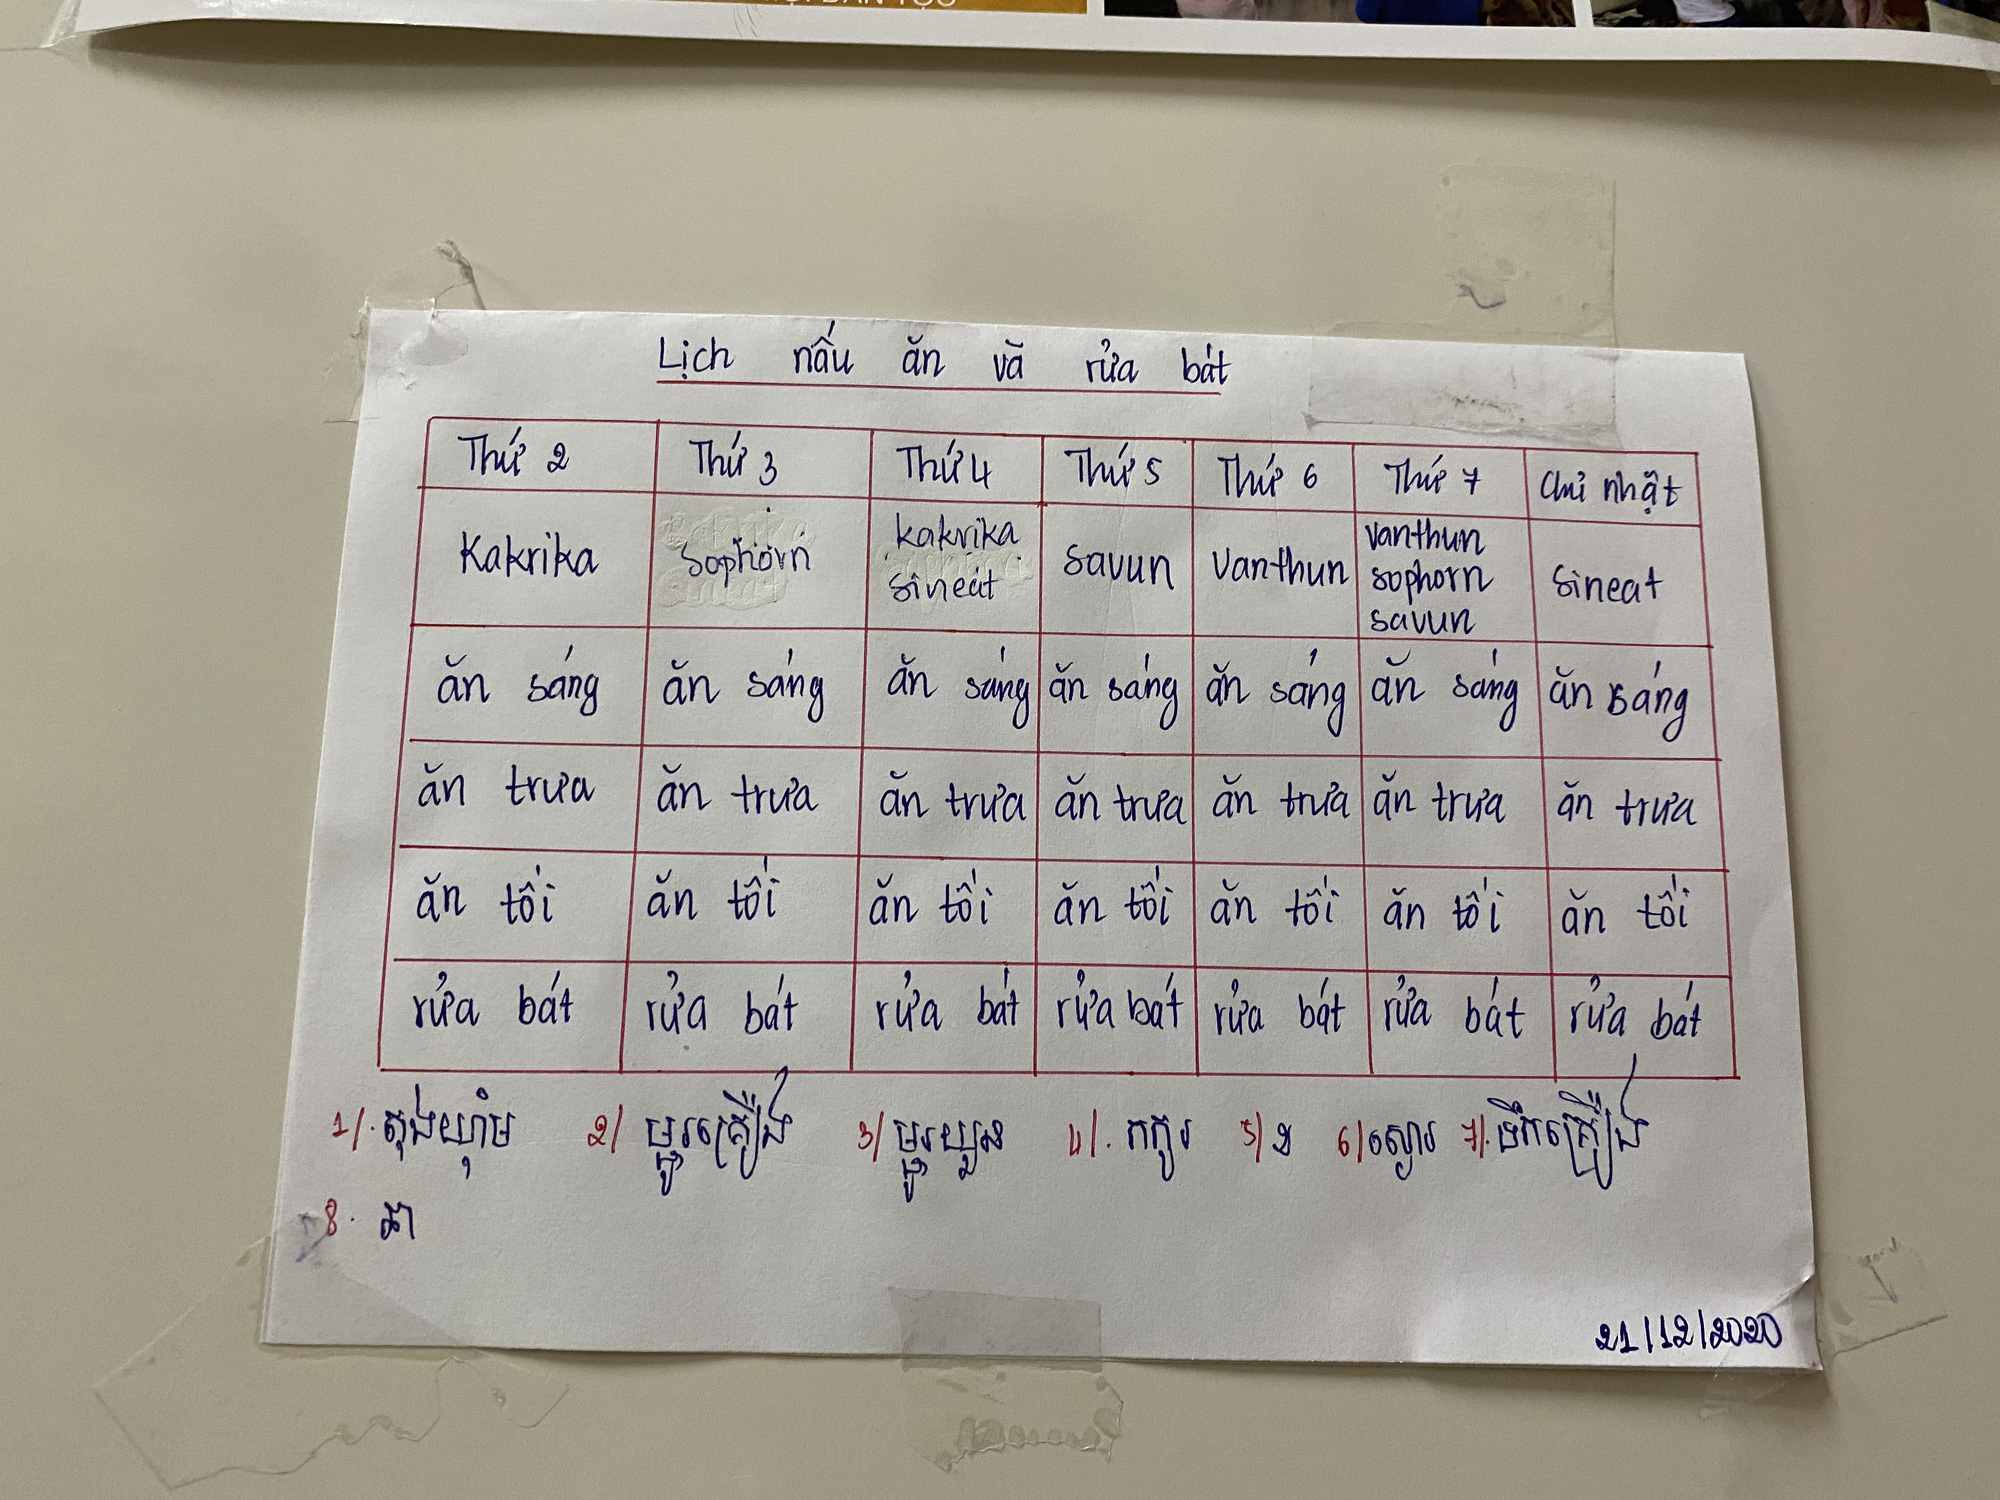 Lịch nấu ăn và rửa bát
Thứ 2 Thứ 3 Thứ 4 Thứ 5 Thứ 6 Thứ 7 Chủ nhật
Kakrika Sophorn kakrika sineat savun Vanthun vanthun sophorn savun sineat
ăn sáng ăn sáng ăn sáng ăn sáng ăn sáng ăn sáng ăn sáng
ăn trưa ăn trưa ăn trưa ăn trưa ăn trưa ăn trưa ăn trưa
ăn tối ăn tối ăn tối ăn tối ăn tối ăn tối ăn tối
rửa bát rửa bát rửa bát rửa bát rửa bát rửa bát rửa bát
1/. តុងយ៉ាំម 2/ ម្ជូរគ្រឿង 3/ ម្ជូរយួន 4/. កកូរ 5/ ខ 6/ ស្ងោរ 7/. ទឹកគ្រឿង
8. ឆា
21/12/2020